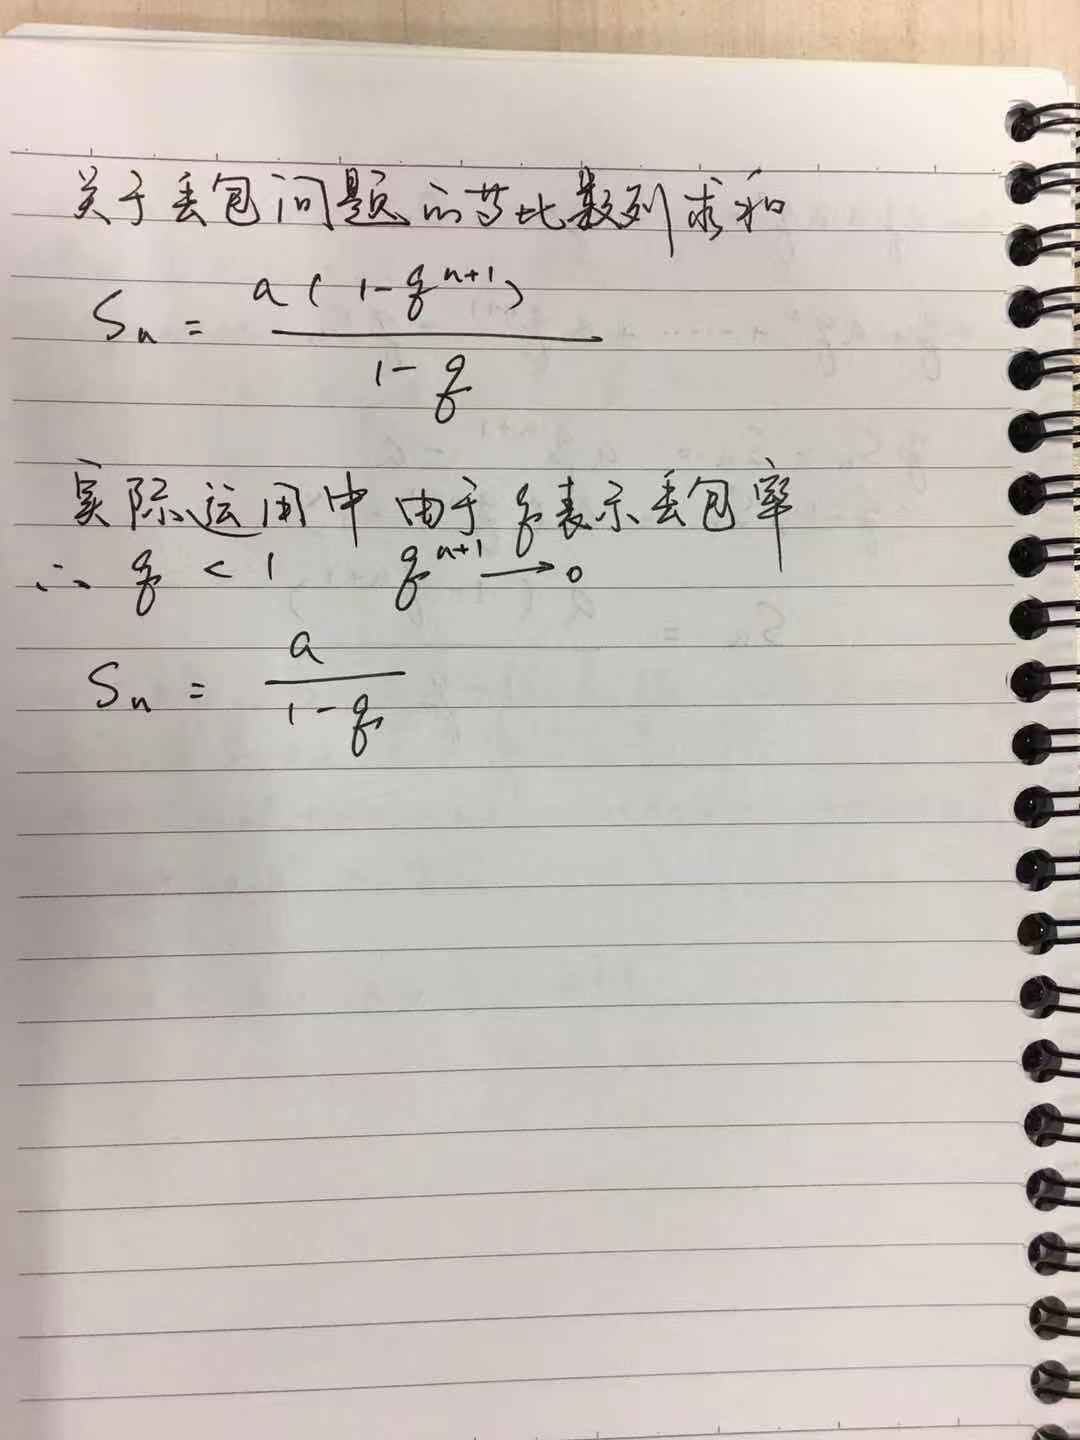 关于丢包问题的等比数列求和
Sn = a(1-q^{n+1}) / (1-q)
实际运用中由于q表示丢包率
∴ q < 1 q^{n+1} → 0
Sn = a / (1-q)